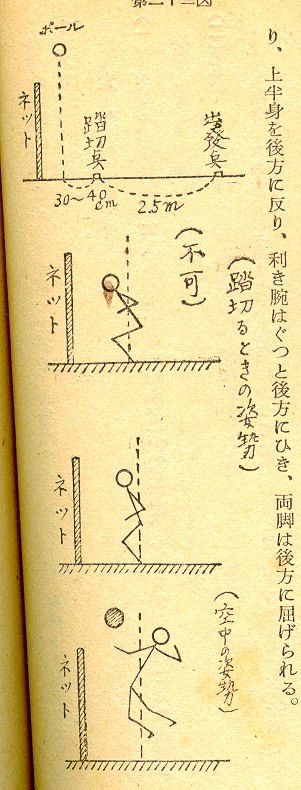 り、上半身を後方に反り、利き腕はぐつと後方にひき、両脚は後方に屈げられる。
ボール
ネット
踏切奌
出發奌
30〜40cm
2.5m
(踏切るときの姿勢)
(不可)
ネット
ネット
(空中の姿勢)
ネット